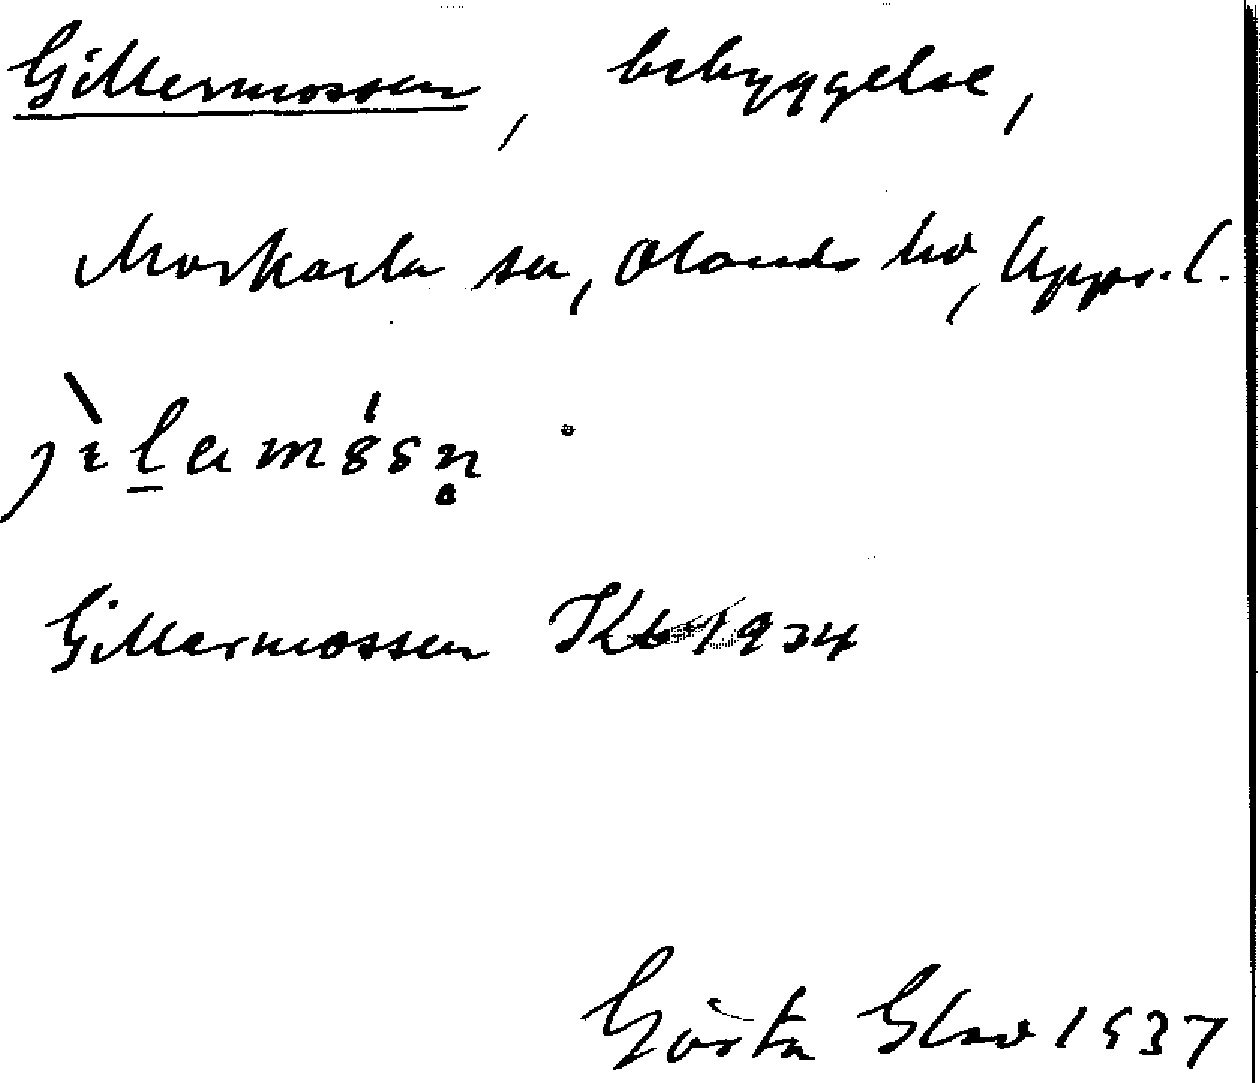 Gillermossen, bebyggelse,
Morkarla sn, Olands hd, Upps. l.
Gillermossen Kb 1934
Gösta Glad 1937